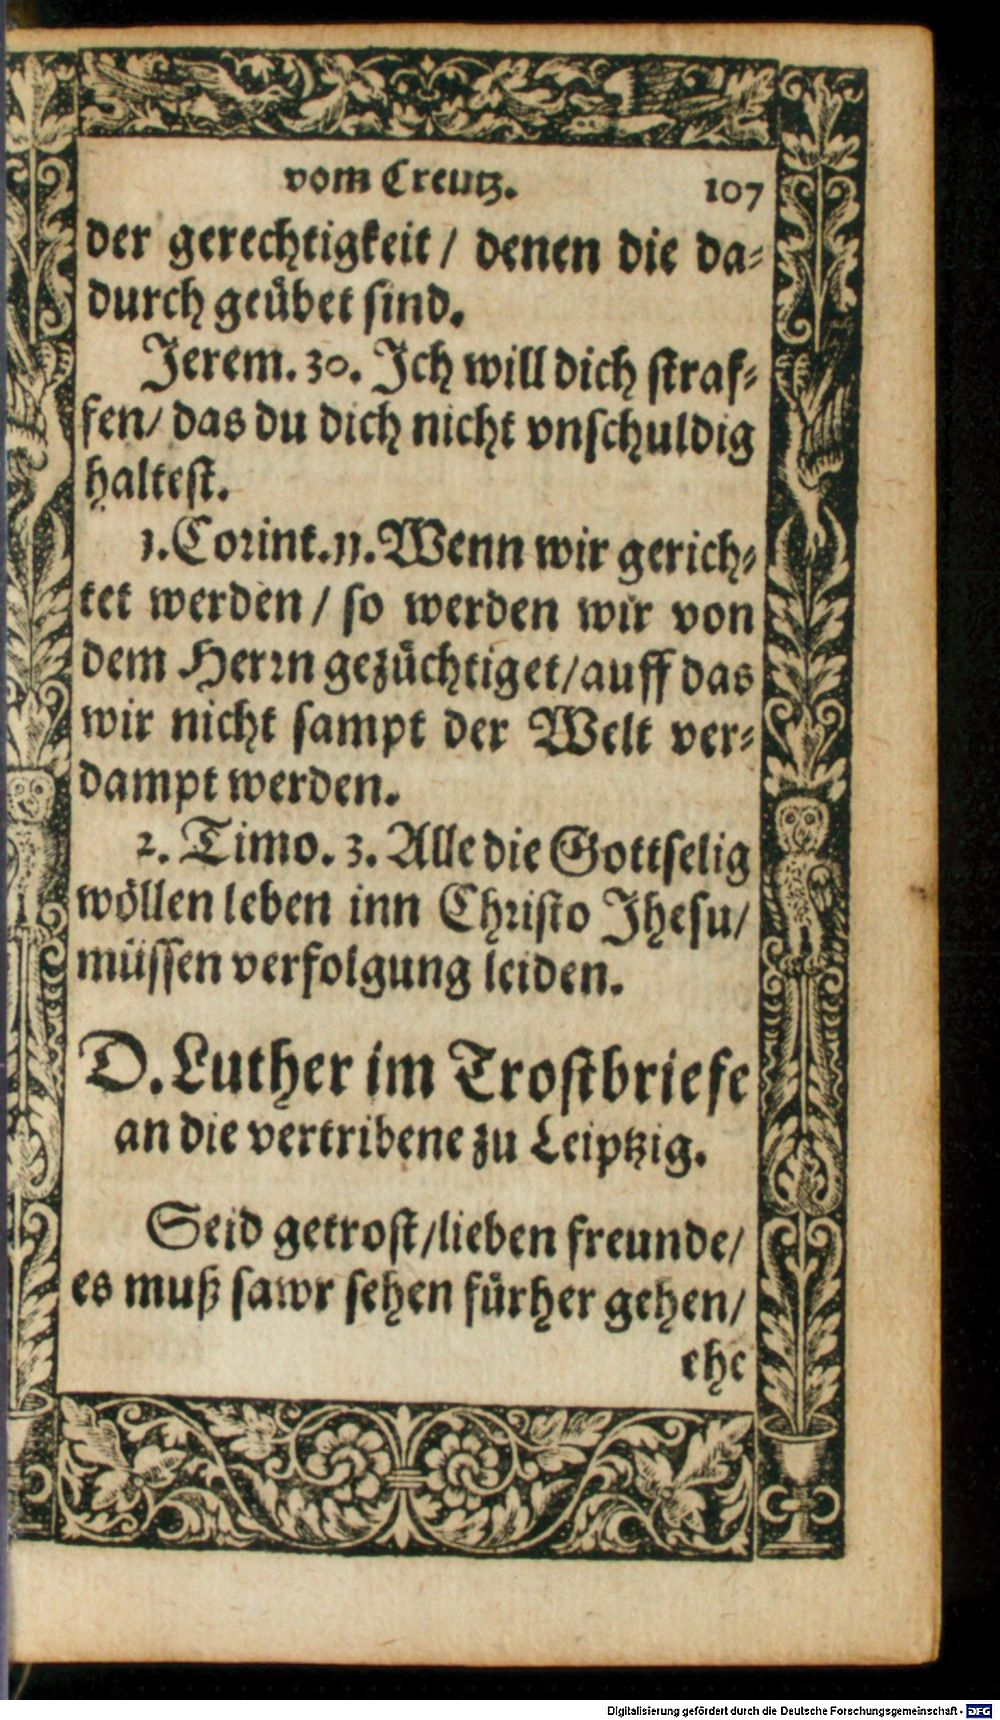 vom Creutz. 107
der gerechtigkeit / denen die da⸗
durch geübet sind.
Jerem. 30. Ich will dich straf⸗
fen / das du dich nicht vnschuldig
haltest.
1. Corint. 11. Wenn wir gerich⸗
tet werden / so werden wir von
dem Herrn gezüchtiget / auff das
wir nicht sampt der Welt ver⸗
dampt werden.
2. Timo. 3. Alle die Gottselig
wöllen leben inn Christo Jhesu /
müssen verfolgung leiden.
D. Luther im Trostbriefe
an die vertribene zu Leiptzig.
Seid getrost / lieben freunde /
es muß sawr sehen fürher gehen /
ehe
Digitalisierung gefördert durch die Deutsche Forschungsgemeinschaft - DFG